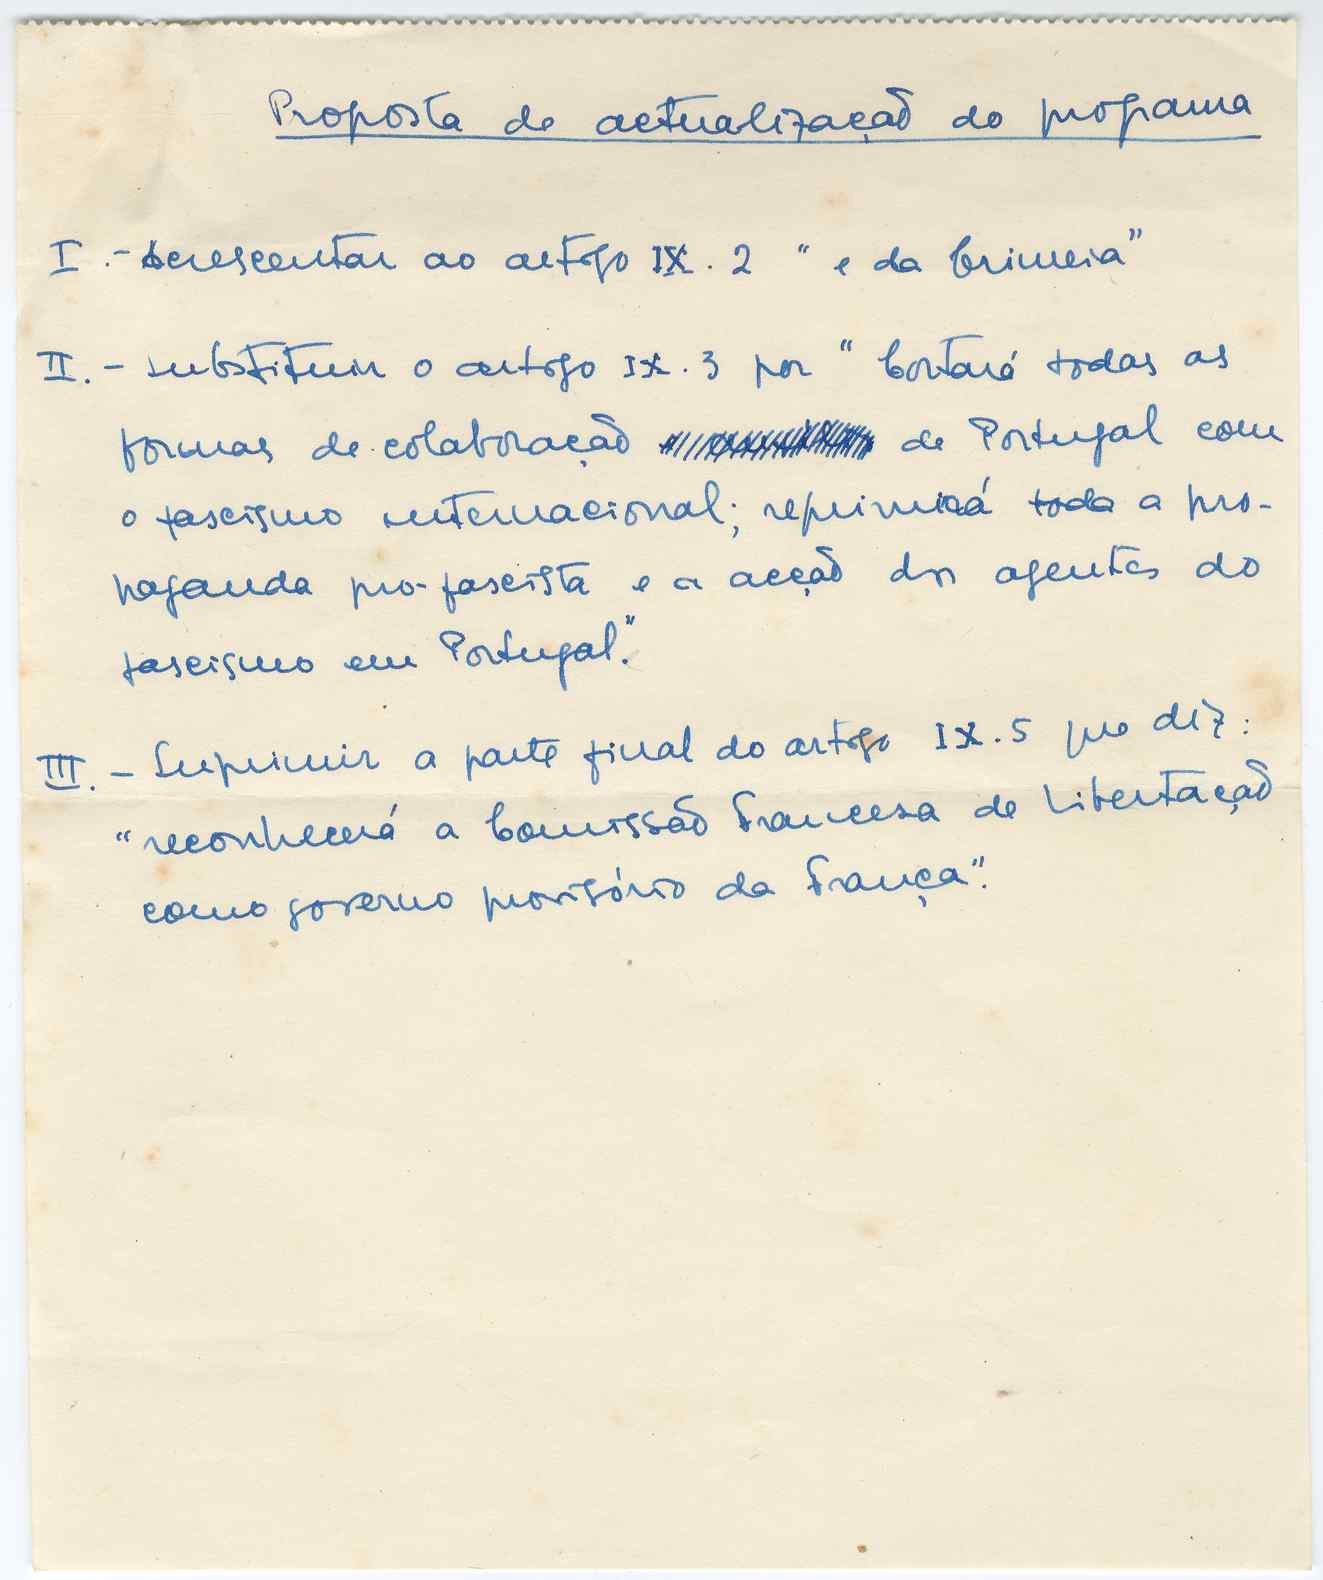 Proposta de actualização do programa
I.- Acrescentar ao artigo IX.2 " e da Crimeia"
II.- substituir o artigo IX.3 por " Cortará todas as
formas de colaboração de Portugal com
o fascismo internacional; reprimirá toda a pro-
paganda pro-fascista e a acção dos agentes do
fascismo em Portugal."
III.- Suprimir a parte final do artigo IX.5 que diz:
"reconhecerá a Comissão Francesa de Libertação
como governo provisório da França".